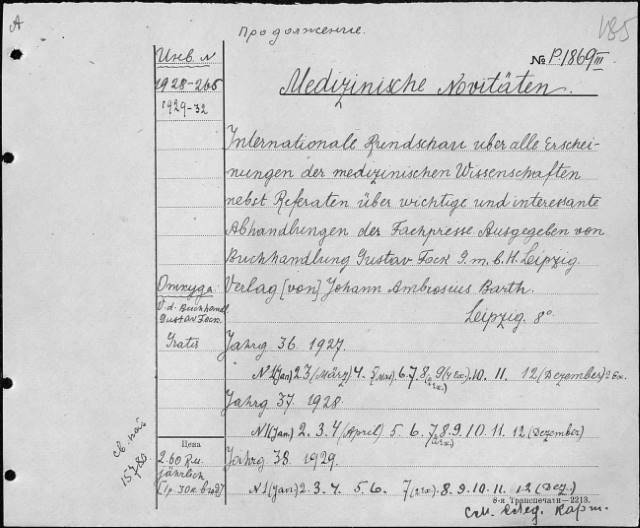 А
Продолжение.
185
Инв. N
№ P.1869 III
1928-265
1929-32
Medizinische Novitäten.
Internationale Rundschau über alle Erschei-
nungen der medizinischen Wissenschaften
nebst Referaten über wichtige und interessante
Abhandlungen der Fachpresse Ausgegeben von
Buchhandlung Gustav Fock G.m.b.H. Leipzig.
Откуда
V. d. Buchhandl.
Gustav Fock.
Gratis
Verlag [von] Johann Ambrosius Barth.
Leipzig. 8°
Jahrg 36 1927.
N1(Jan) 2 3 (März) 4. 5 6. 7. 8. 9 (2 Ex.). 10. 11. 12 (Dezember) 2 Ex.
Jahrg 37. 1928
N1(Jan) 2. 3. 4 (April) 5. 6. 7. 8. 9. 10. 11. 12 (Dezember)
(2 Ex.)
Jahrg 38. 1929.
N1(Jan) 2. 3. 4. 5. 6. 7 (2 Ex.). 8. 9. 10. 11. 12 (Dez.)
Цена
2.60 R.M.
jährlich
8-я Транспечати—2213.
См. след. карт.